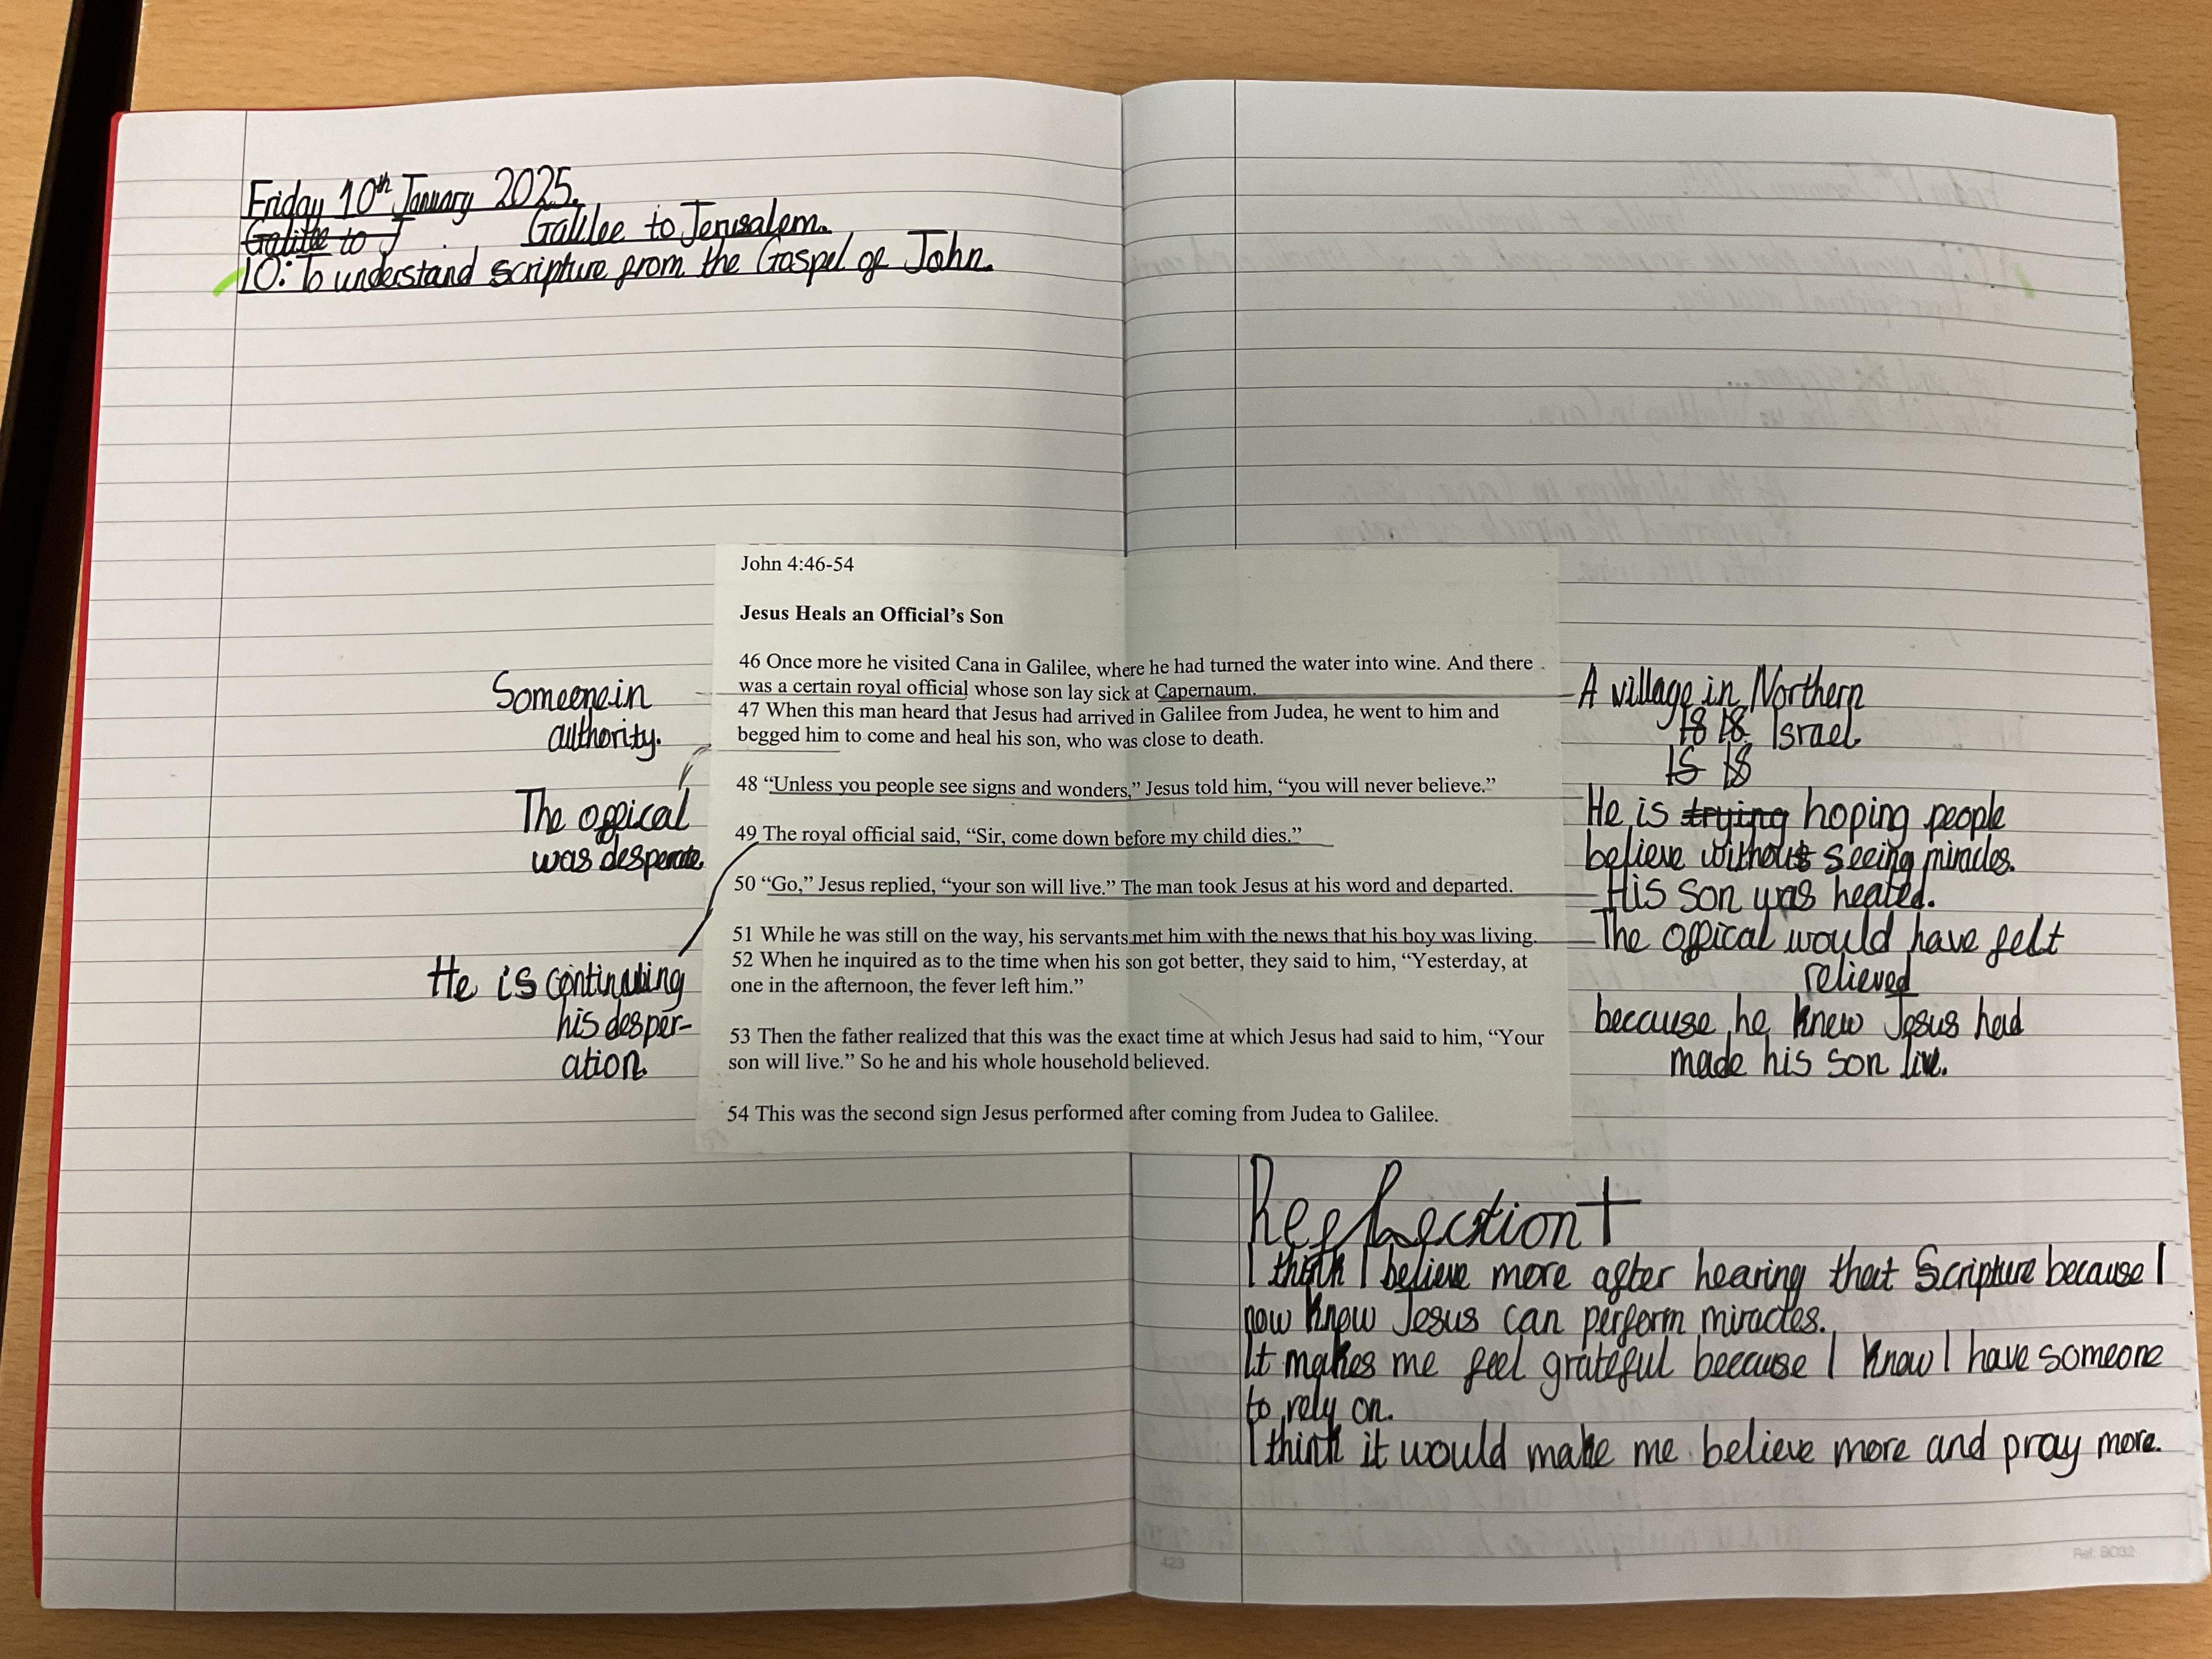 Friday 10th January 2025.
Galilee to J
Galilee to Jerusalem.
LO: To understand scripture from the Gospel of John.
John 4:46-54
Jesus Heals an Official's Son
46 Once more he visited Cana in Galilee, where he had turned the water into wine. And there
was a certain royal official whose son lay sick at Capernaum.
47 When this man heard that Jesus had arrived in Galilee from Judea, he went to him and
begged him to come and heal his son, who was close to death.
48 “Unless you people see signs and wonders,” Jesus told him, “you will never believe.”
49 The royal official said, “Sir, come down before my child dies.”
50 “Go,” Jesus replied, “your son will live.” The man took Jesus at his word and departed.
51 While he was still on the way, his servants met him with the news that his boy was living.
52 When he inquired as to the time when his son got better, they said to him, “Yesterday, at
one in the afternoon, the fever left him.”
53 Then the father realized that this was the exact time at which Jesus had said to him, “Your
son will live.” So he and his whole household believed.
54 This was the second sign Jesus performed after coming from Judea to Galilee.
Someone in
authority.
The offical
was desperate.
He is continuing
his desper-
ation.
A village in Northern
Israel
He is trying hoping people
believe without seeing miracles.
His son was healed.
The offical would have felt
relieved
because he knew Jesus had
made his son live.
Reflection
I think I believe more after hearing that Scripture because I
now know Jesus can perform miracles.
It makes me feel grateful because I know I have someone
to rely on.
I think it would make me believe more and pray more.
423
Ref: BO32